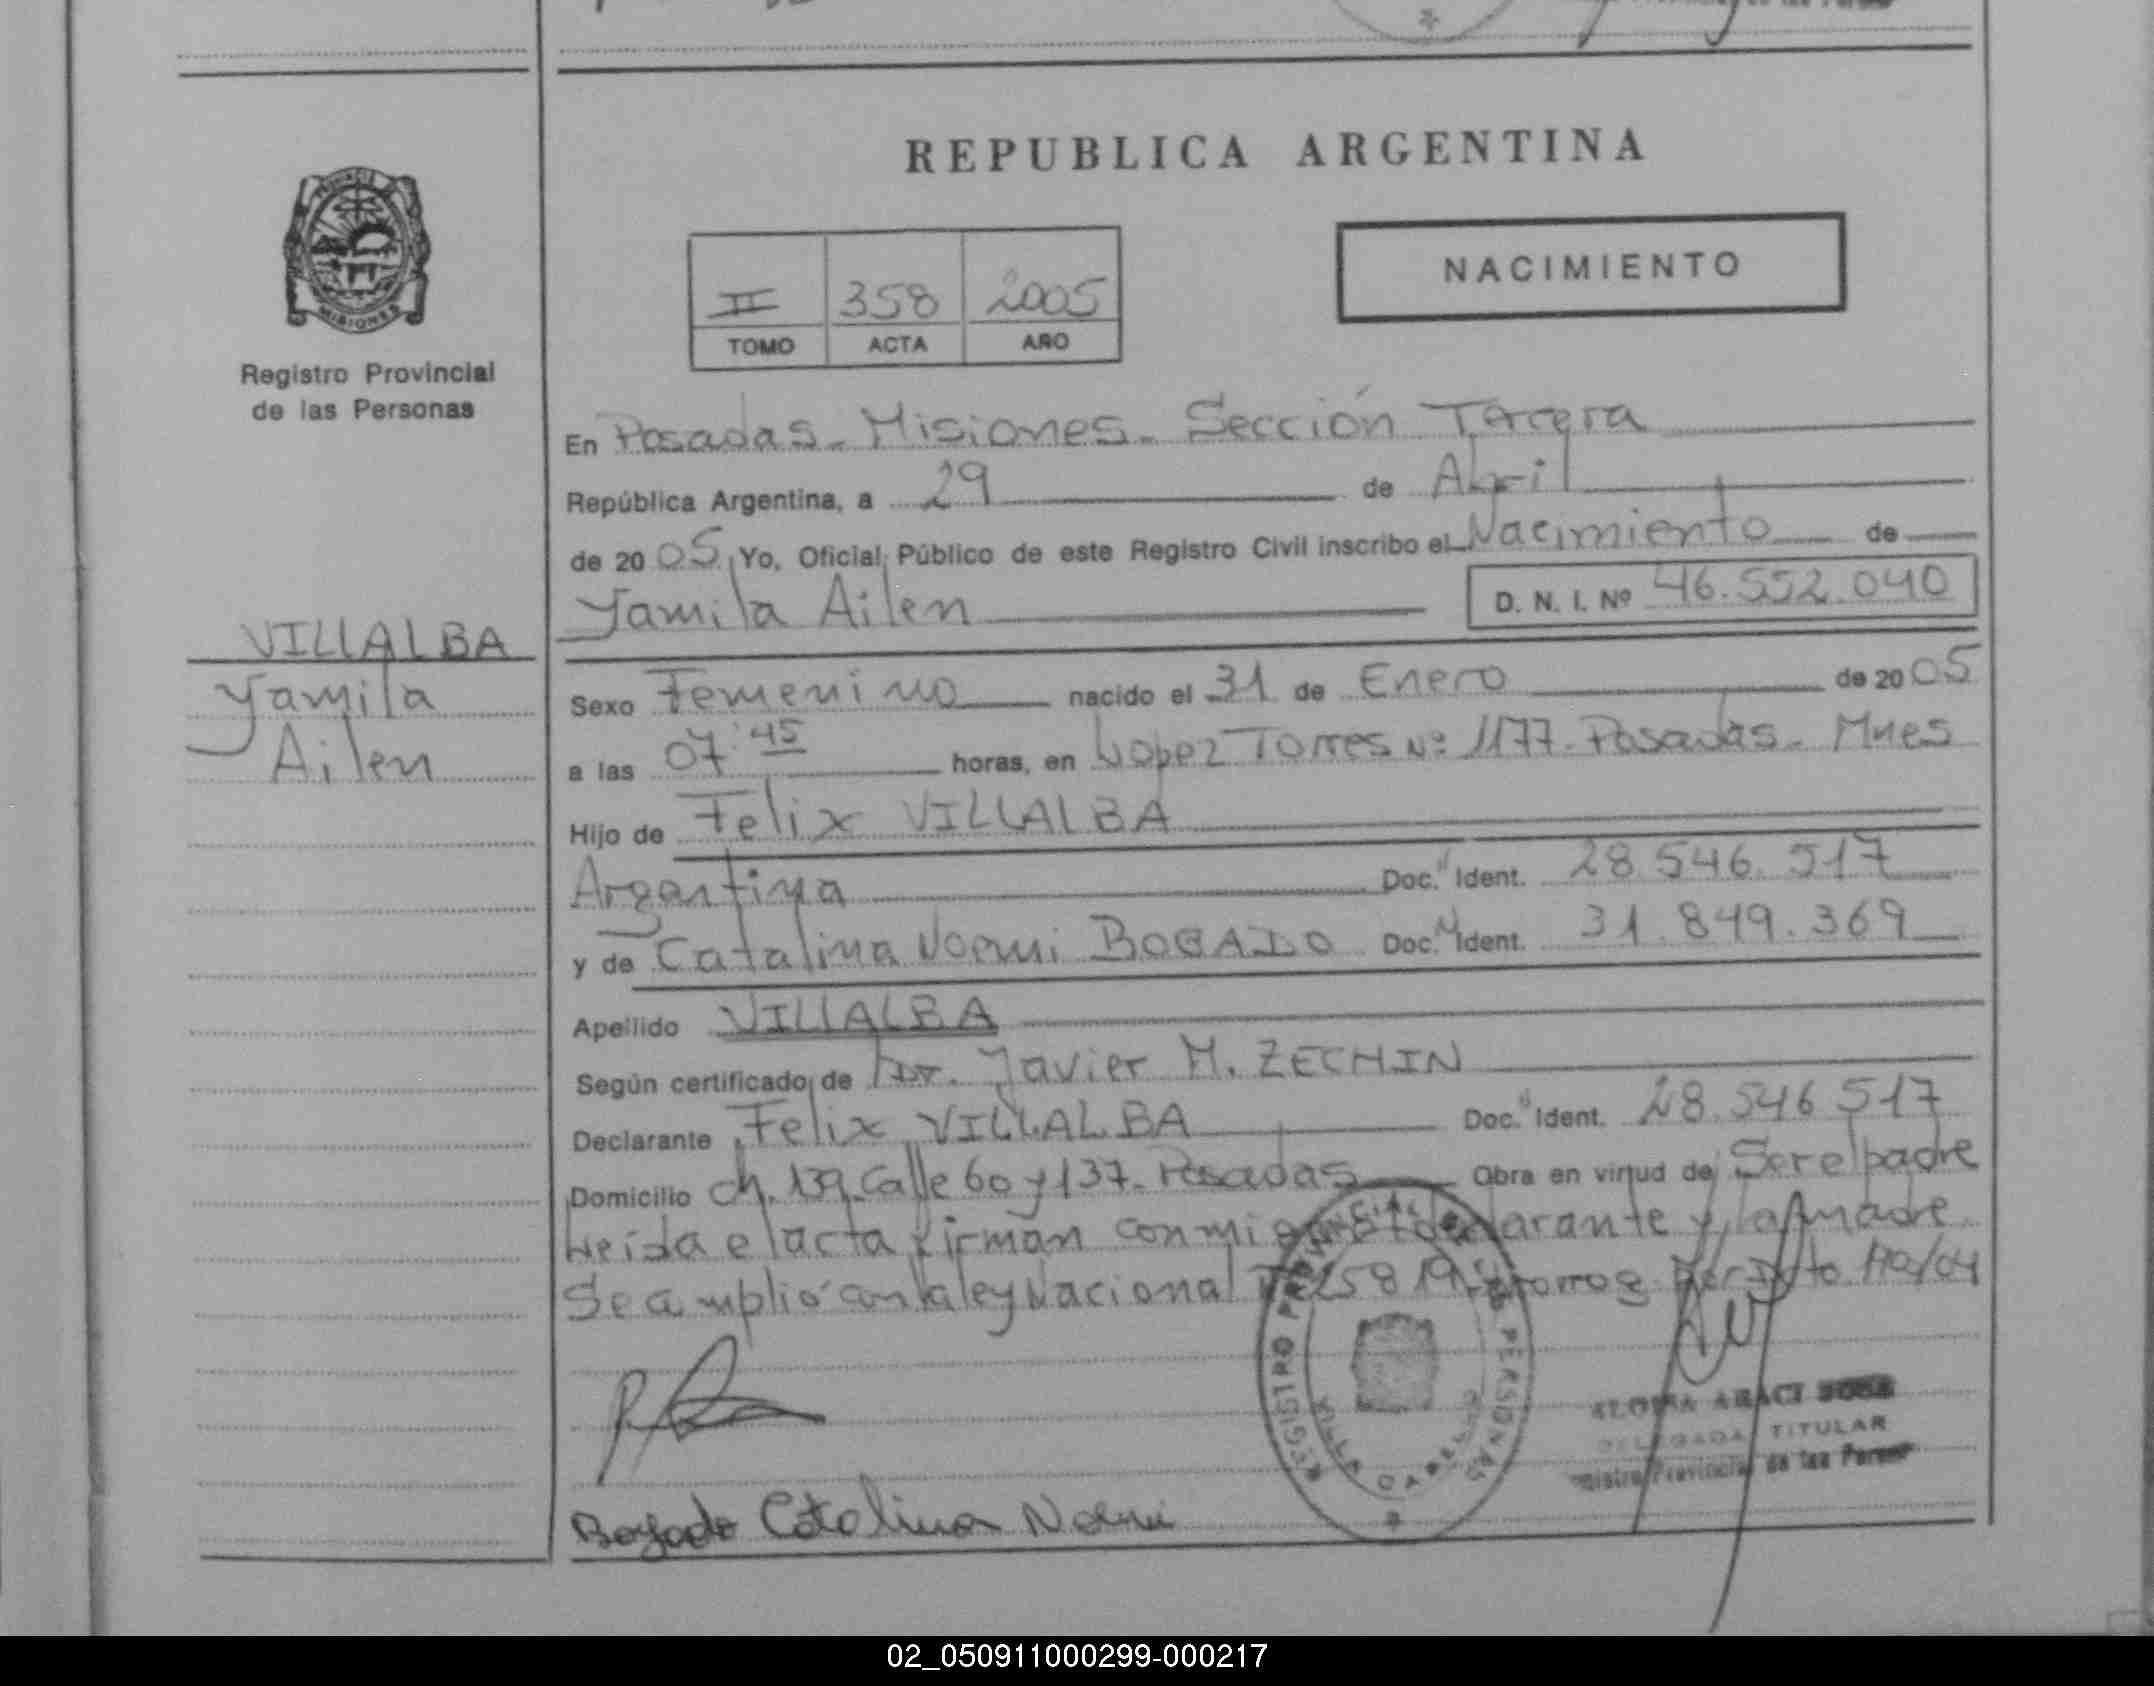 REPUBLICA ARGENTINA
NACIMIENTO
II 358 2005
TOMO ACTA AÑO
PROVINCIA DE
MISIONES
Registro Provincial
de las Personas
VILLALBA
Yamila
Ailen
En Posadas - Misiones - Sección Tercera
República Argentina, a 29 de Abril
de 2005 Yo, Oficial Público de este Registro Civil inscribo el Nacimiento de
Yamila Ailen D. N. I. Nº 46.552.040
Sexo Femenino nacido el 31 de Enero de 2005
a las 07:45 horas, en Lopez Torres Nº 1177 - Posadas - Mnes
Hijo de Felix VILLALBA
Argentina Doc. Ident. 28.546.517
y de Catalina Noemi BOGADO Doc. Ident. 31.849.369
Apellido VILLALBA
Según certificado de Dr. Javier M. ZECHIN
Declarante Felix VILLALBA Doc. Ident. 28.546 517
Domicilio Ch. 139 Calle 60 y 137 - Posadas Obra en virtud de Ser el padre
Leída el acta firman conmigo el declarante y la madre
Se amplió con la ley Nacional 25819 Dcto 110/04
REGISTRO PROVINCIAL DE LAS PERSONAS
VILLA CABELLO
ARACI
DELEGADA TITULAR
Registro Provincial de las Person
Bogado Catalina Noemi
02_050911000299-000217